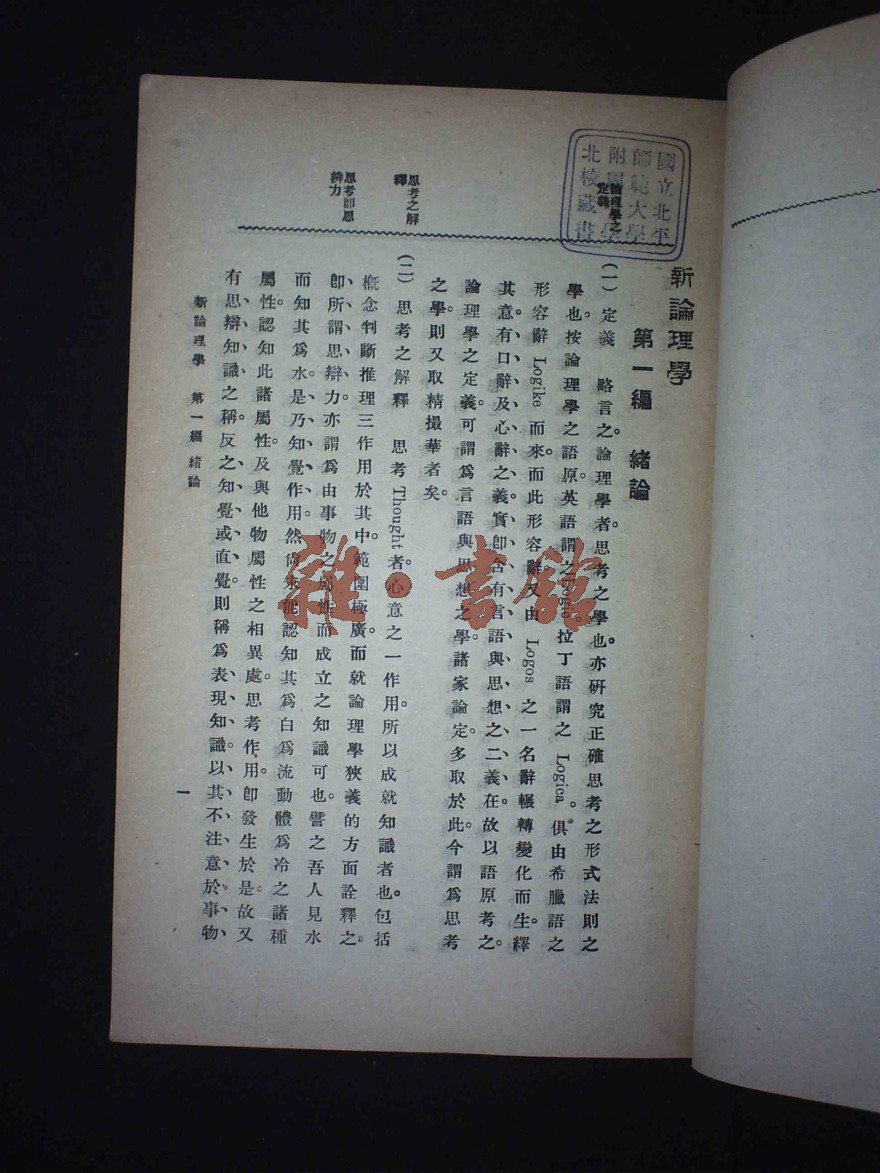 新論理學
第一編　緒論
(一)　定義　略言之。論理學者。思考之學也。亦研究正確思考之形式法則之
學也。按論理學之語原。英語謂之Logic。拉丁語謂之 Logica。俱由希臘語之
形容辭 Logike 而來。而此形容辭又由 Logos 之一名辭輾轉變化而生。繹
其意。有口辭及心辭之義。實卽含有言語與思想之二義。在故以語原考之。
論理學之定義。可謂爲言語與思想之學。諸家論定。多取於此。今謂爲思考
之學。則又取精撮華者矣。
(二)　思考之解釋　思考 Thought 者。心意之一作用。所以成就知識者也。包括
概念判斷推理三作用於其中。範圍極廣。而就論理學狹義的方面詮釋之。
卽所謂思辯力。亦謂爲由事物之屬性而成立之知識可也。譬之吾人見水
而知其爲水。是乃知覺作用。然尙未能認知其爲白爲流動體爲冷之諸種
屬性。認知此諸屬性。及與他物屬性之相異處。思考作用。卽發生於是。故又
有思辯知識之稱。反之知覺或直覺。則稱爲表現知識。以其不注意於事物
論理學之
定義
思考之解
釋
思考卽思
辨力
新論理學　第一編　緒論
一
國立北平
師範大學
附屬
北校藏書
雜·書館